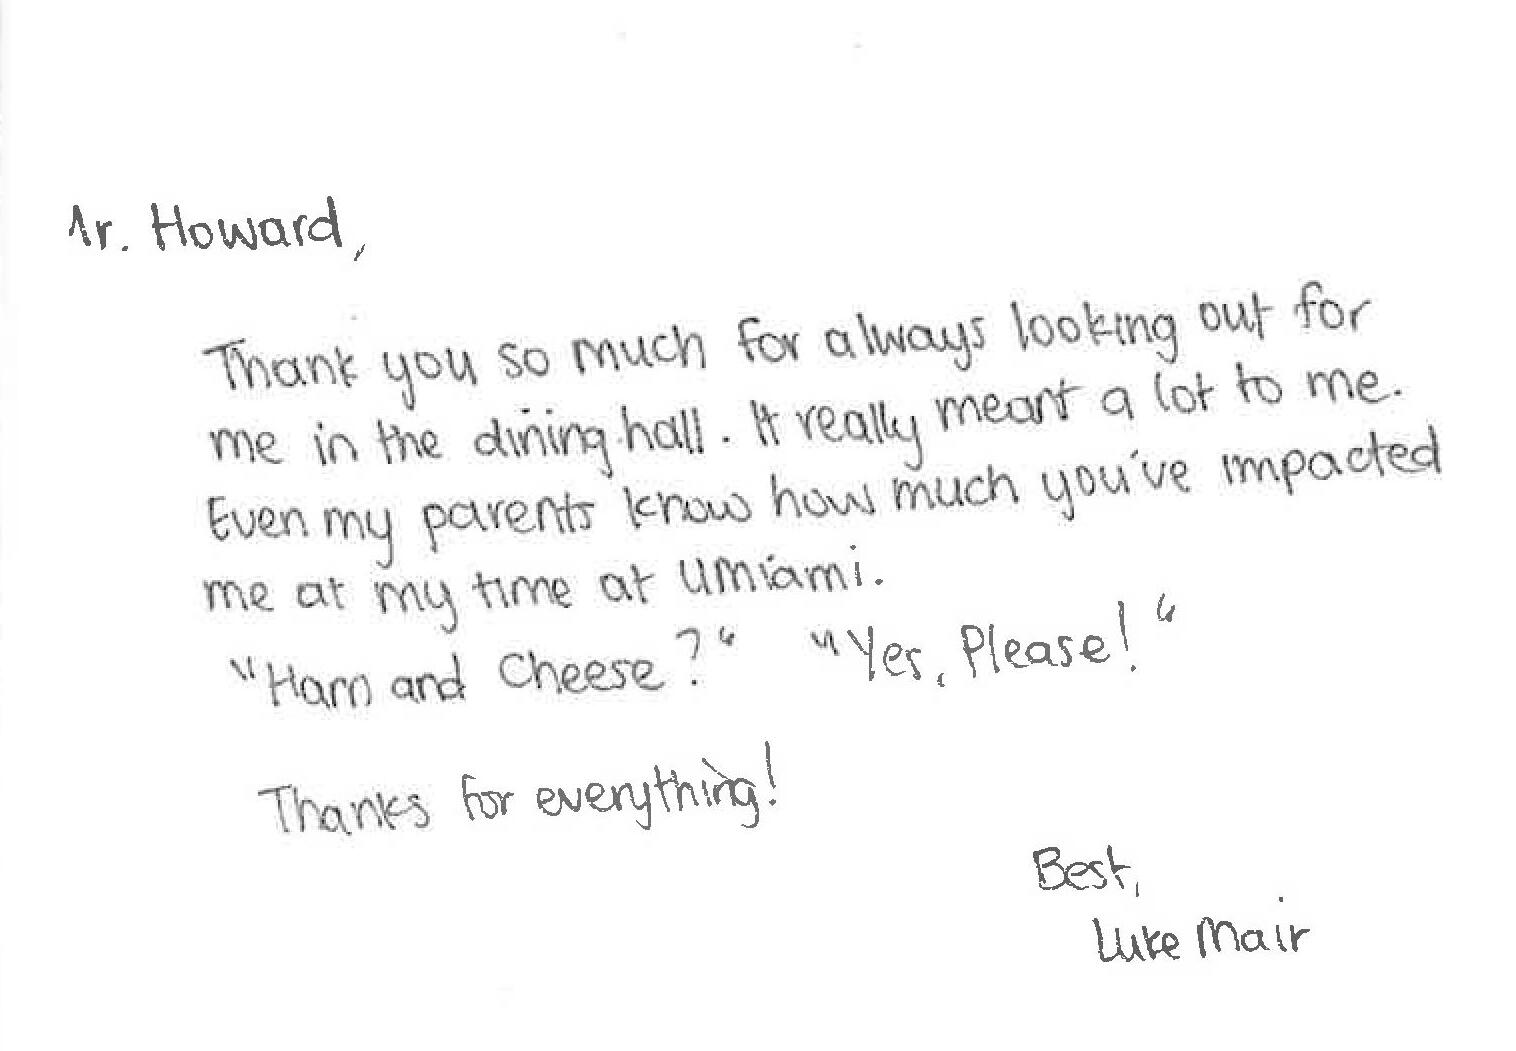 Mr. Howard,
Thank you so much for always looking out for
me in the dining hall. It really meant a lot to me.
Even my parents know how much you've impacted
me at my time at UMiami.
"Ham and Cheese?" "Yes, Please!"
Thanks for everything!
Best,
Luke Mair